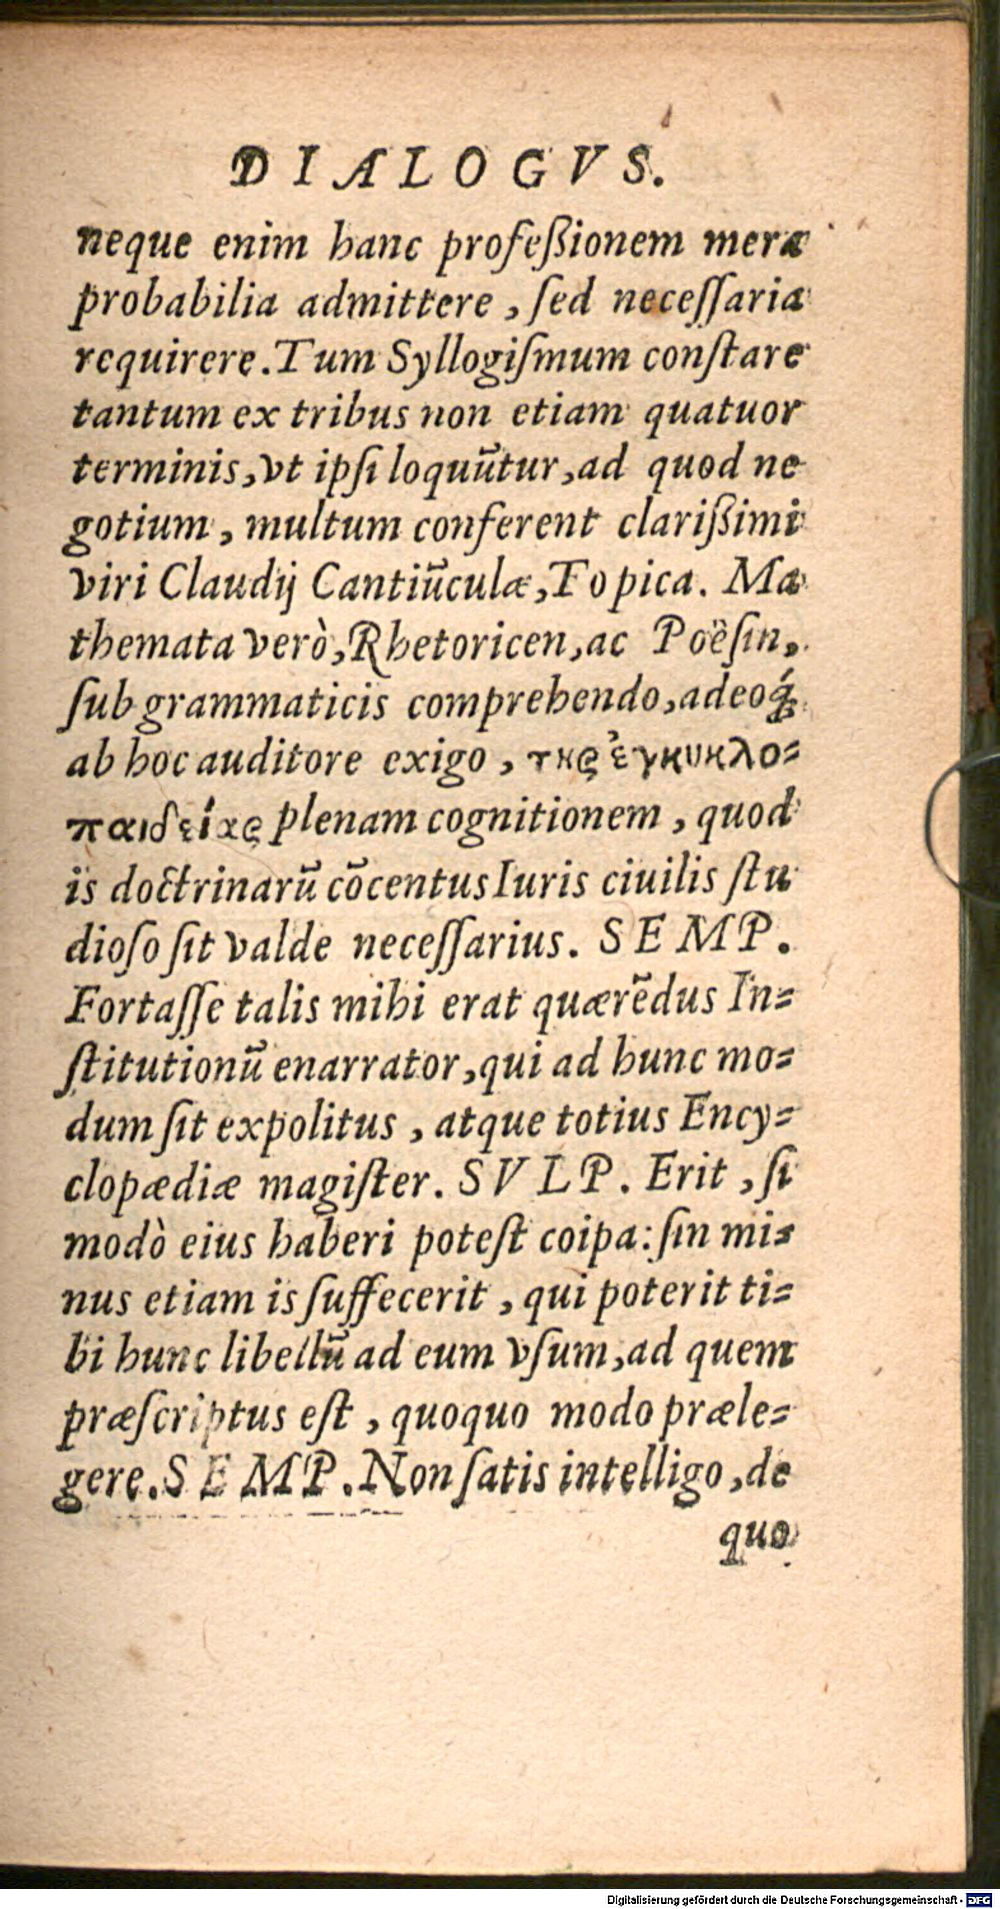 DIALOGVS.
neque enim hanc profeßionem mera
probabilia admittere, ſed neceſſaria
requirere. Tum Syllogiſmum conſtare
tantum ex tribus non etiam quatuor
terminis, vt ipſi loquūtur, ad quod ne
gotium, multum conferent clarißimi
viri Claudij Cantiūculæ, Topica. Ma
themata verò, Rhetoricen, ac Poëſin,
ſub grammaticis comprehendo, adeoq́;
ab hoc auditore exigo, της ἐγκυκλο-
παιδείας plenam cognitionem, quod
is doctrinarū cōcentus Iuris ciuilis ſtu
dioſo ſit valde neceſſarius. SEMP.
Fortaſſe talis mihi erat quærēdus In-
ſtitutionū enarrator, qui ad hunc mo-
dum ſit expolitus, atque totius Ency-
clopædiæ magiſter. SVLP. Erit, ſi
modò eius haberi poteſt coipa: ſin mi-
nus etiam is ſuffecerit, qui poterit ti-
bi hunc libellū ad eum vſum, ad quem
præſcriptus eſt, quoquo modo præle-
gere. SEMP. Non ſatis intelligo, de
quo
Digitalisierung gefördert durch die Deutsche Forschungsgemeinschaft - DFG